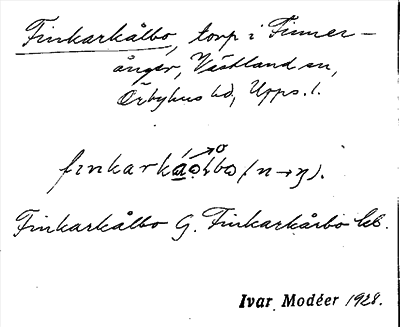 Finkarkålbo, torp i Finner-
ånger, Västland sn,
Örbyhus hd, Upps. l.
finkarkålbo (n→ŋ).
Finkarkålbo G. Finkarkårbo kb.
Ivar Modéer 1928.